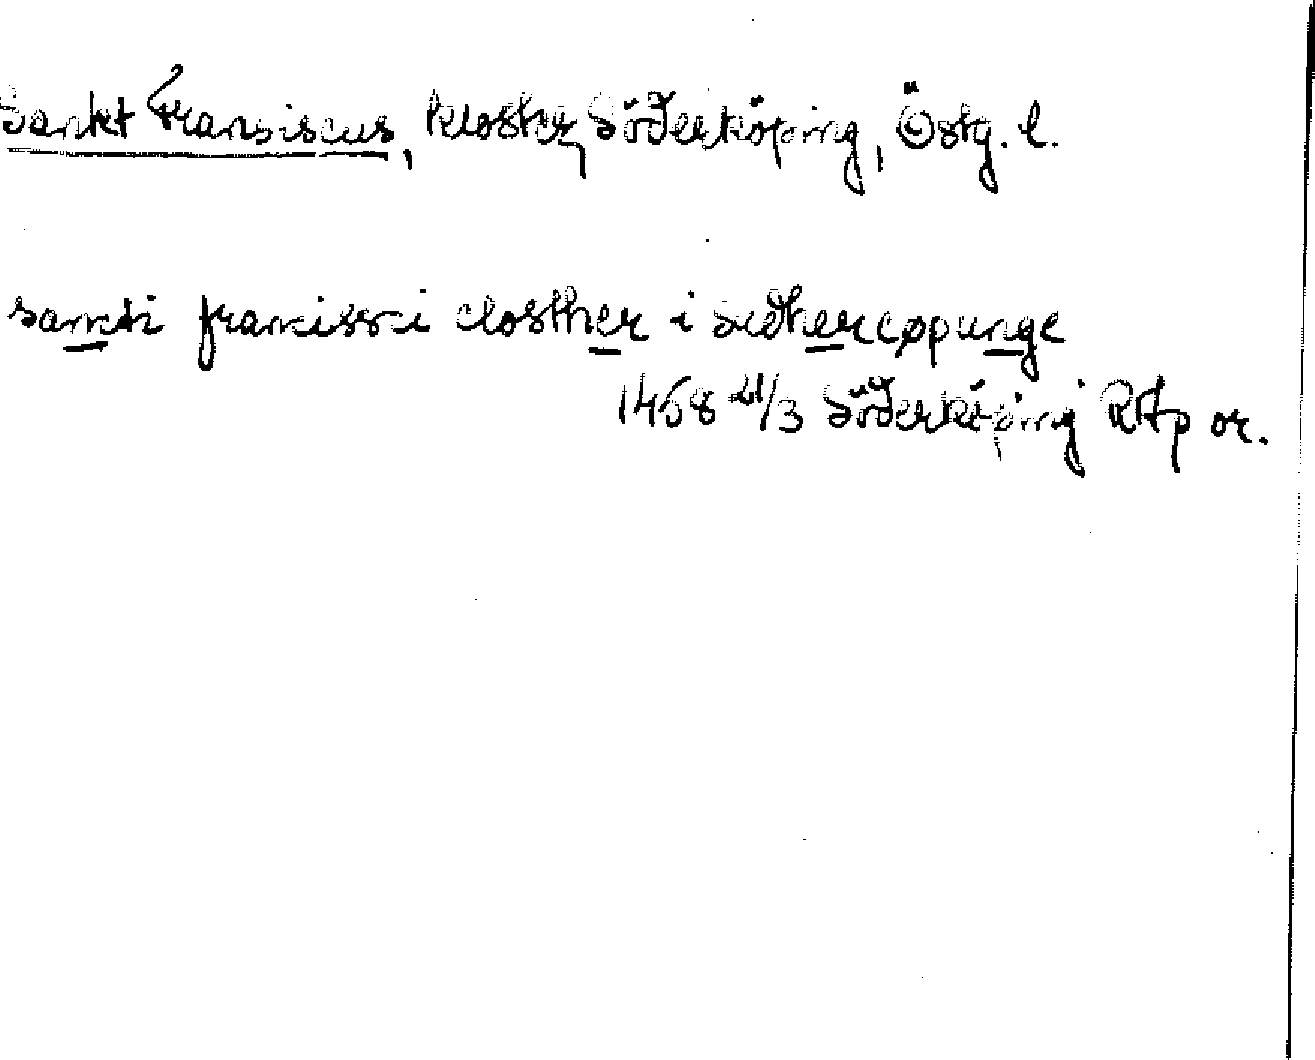 Sankt Fransiscus, kloster, Söderköping, Östg. l.
sancti francissci closther i sudhercøpunge
1458 21/3 Söderköping RAp or.